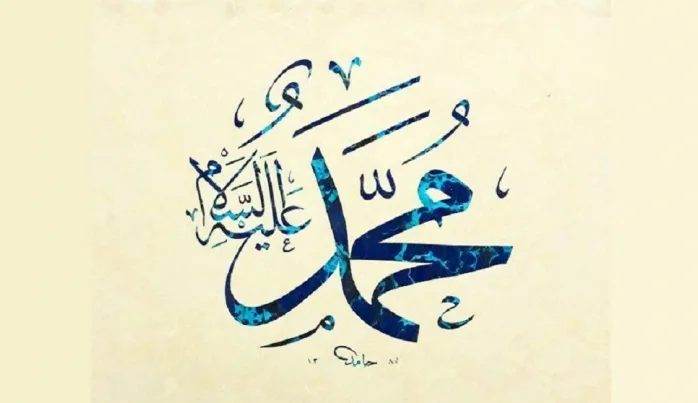 مُحَمَّد
عَلَيْهِ السَّلَامُ
حامد